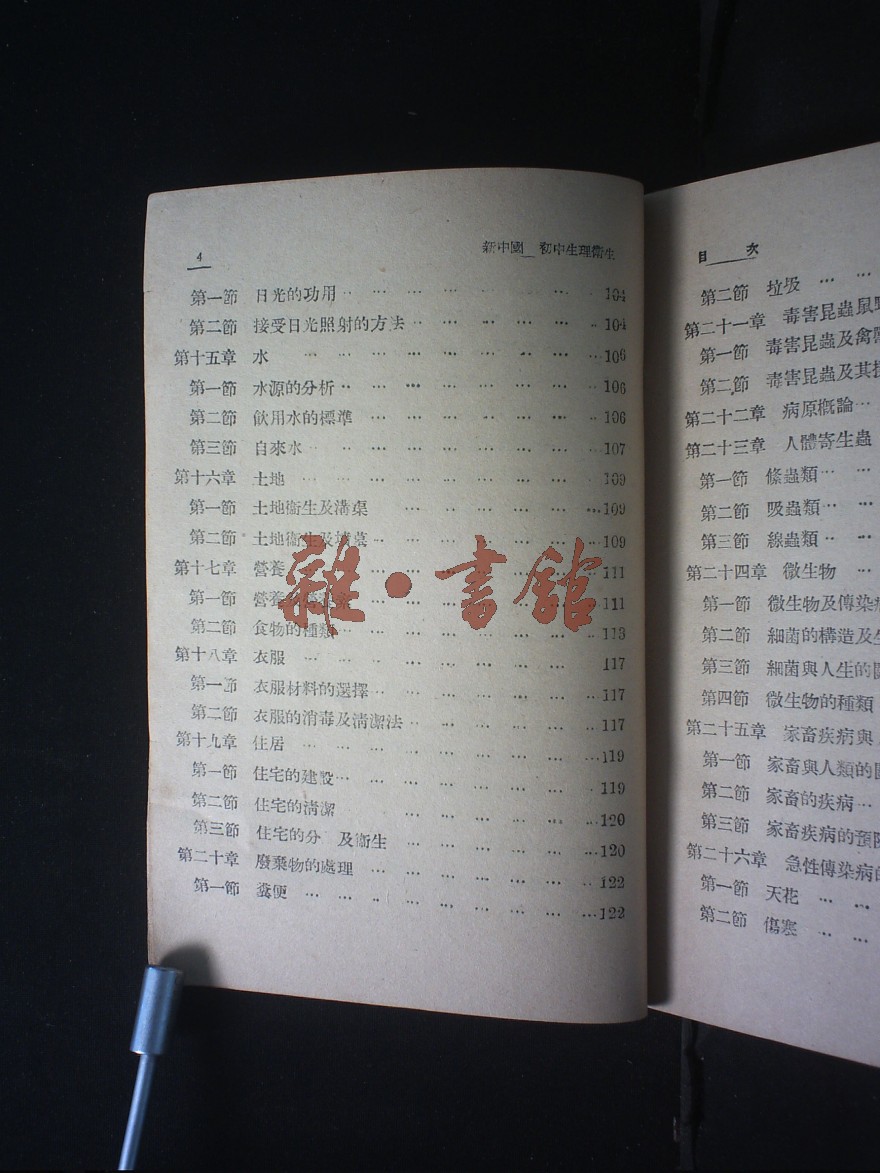 4 新中國 初中生理衛生
第一節 日光的功用 … 104
第二節 接受日光照射的方法 … 104
第十五章 水 … 106
第一節 水源的分析 … 106
第二節 飲用水的標準 … 106
第三節 自來水 … 107
第十六章 土地 … 109
第一節 土地衛生及溝渠 … 109
第二節 土地衛生及墳墓 … 109
第十七章 營養 … 111
第一節 營養 … 111
第二節 食物的種類 … 113
第十八章 衣服 … 117
第一節 衣服材料的選擇 … 117
第二節 衣服的消毒及清潔法 … 117
第十九章 住居 … 119
第一節 住宅的建設 … 119
第二節 住宅的清潔 … 120
第三節 住宅的分 及衛生 … 120
第二十章 廢棄物的處理 … 122
第一節 糞便 … 122
雜·書館
目 次
第二節 垃圾 …
第二十一章 毒害昆蟲鼠
第一節 毒害昆蟲及禽
第二節 毒害昆蟲及其
第二十二章 病原概論 …
第二十三章 人體寄生蟲
第一節 絛蟲類 …
第二節 吸蟲類 …
第三節 線蟲類 …
第二十四章 微生物 …
第一節 微生物及傳染
第二節 細菌的構造及
第三節 細菌與人生的
第四節 微生物的種類
第二十五章 家畜疾病與
第一節 家畜與人類的
第二節 家畜的疾病 …
第三節 家畜疾病的預
第二十六章 急性傳染病
第一節 天花 …
第二節 傷寒 …